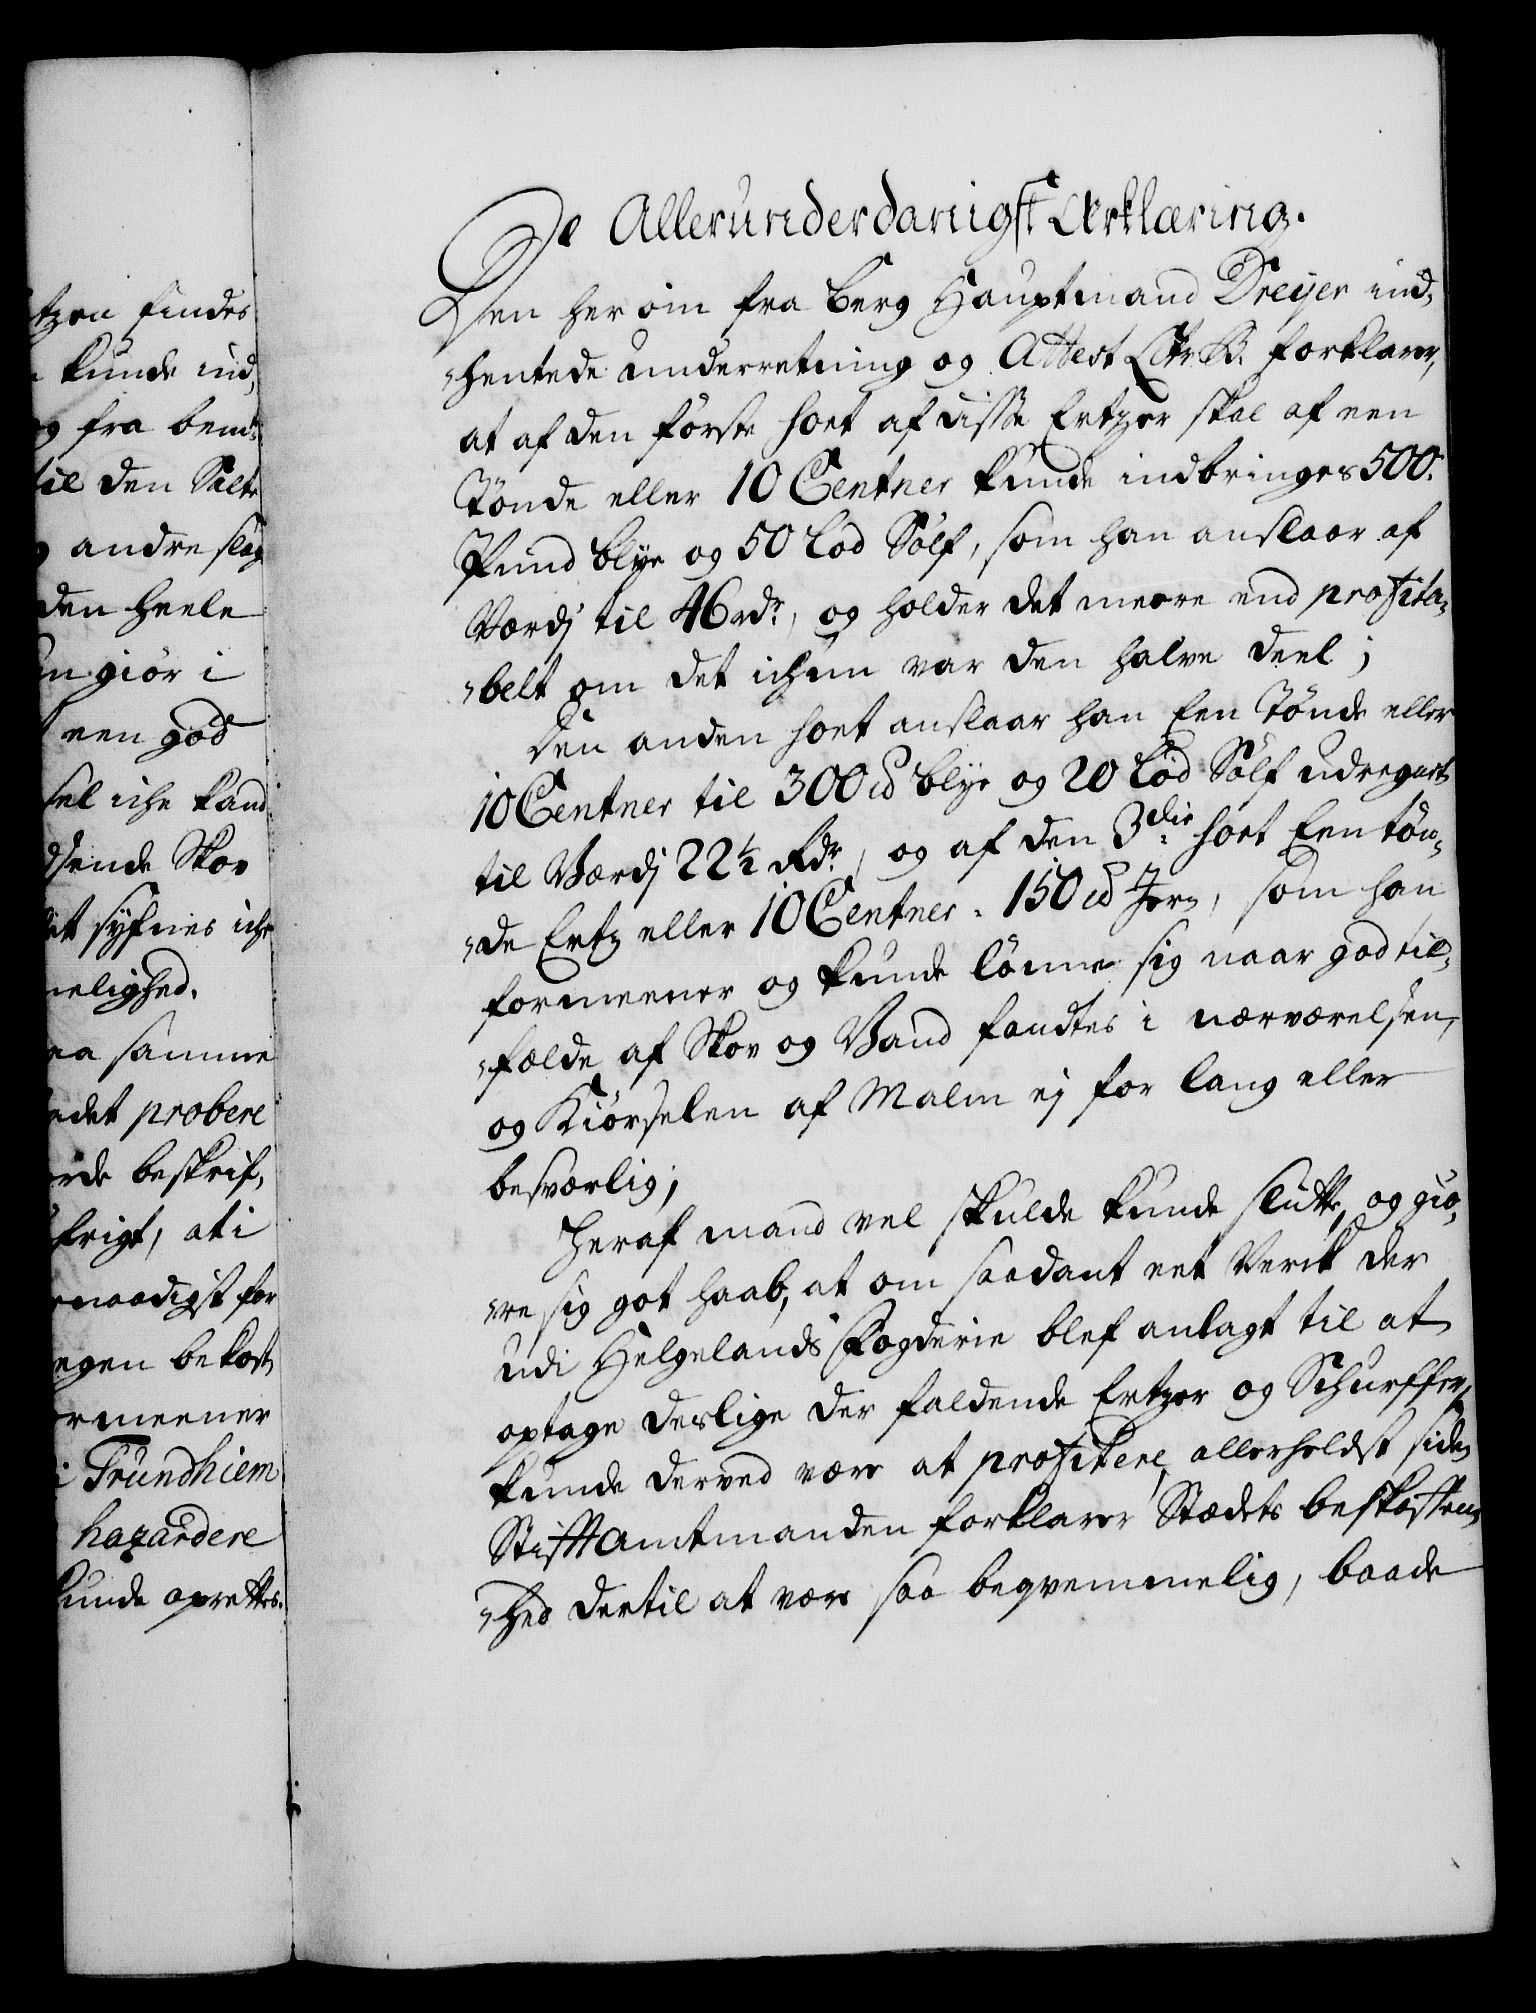 tzen findes
kunde ind,
og fra bemte
til den Salte
andre slag
den heele
giör i
een god
sel iche kand
sende Skov
syfnes iche
melighed.
samme
edet probere
orde beskrif,
frigt, at i
naadigst for
egen bekost
ormeener
i Trundhiem
hazardere
kunde oprettes.
De Allerunderdanigst Erklæring.
Den her om fra Berg Hauptmand Dreyer ind,
,hentede underretning og Attest Ltr. B. forklarer,
at af den förste sort af disse Ertzer skal af een
Tönde eller 10 Centner kunde indbringes 500.
Pund blye og 50 Lod Sölf, som han anslaar af
Værdj til 46 rdr., og holder det meere end profita,
,belt om det ichun var den halve deel;
Den anden sort anslaar han Een Tönde eller
10 Centner til 300 lb blye og 20 Lod Sölf udregnet
til Værdj 22½ Rdr., og af den 3die sort Een tön,
,de Ertz eller 10 Centner. 150 lb Jern, som han
formeener og kunde lönne sig naar god til,
,fælde af Skov og Vand fandtes i nærværelsen,
og Kiörselen af Malm ej for lang eller
besværlig;
Heraf mand vel skulde kunde slutte, og giö,
,re sig got haab, at om saadant eet Verck der
udi Helgelands Fogderie blef anlagt til at
optage deslige der faldende Ertzer og Schurffer,
kunde derved være at profitere, allerheldst siden
Stiftamtmanden forklarer Stædets beskaffen,
,hed dertil at være saa beqvemmelig, baade